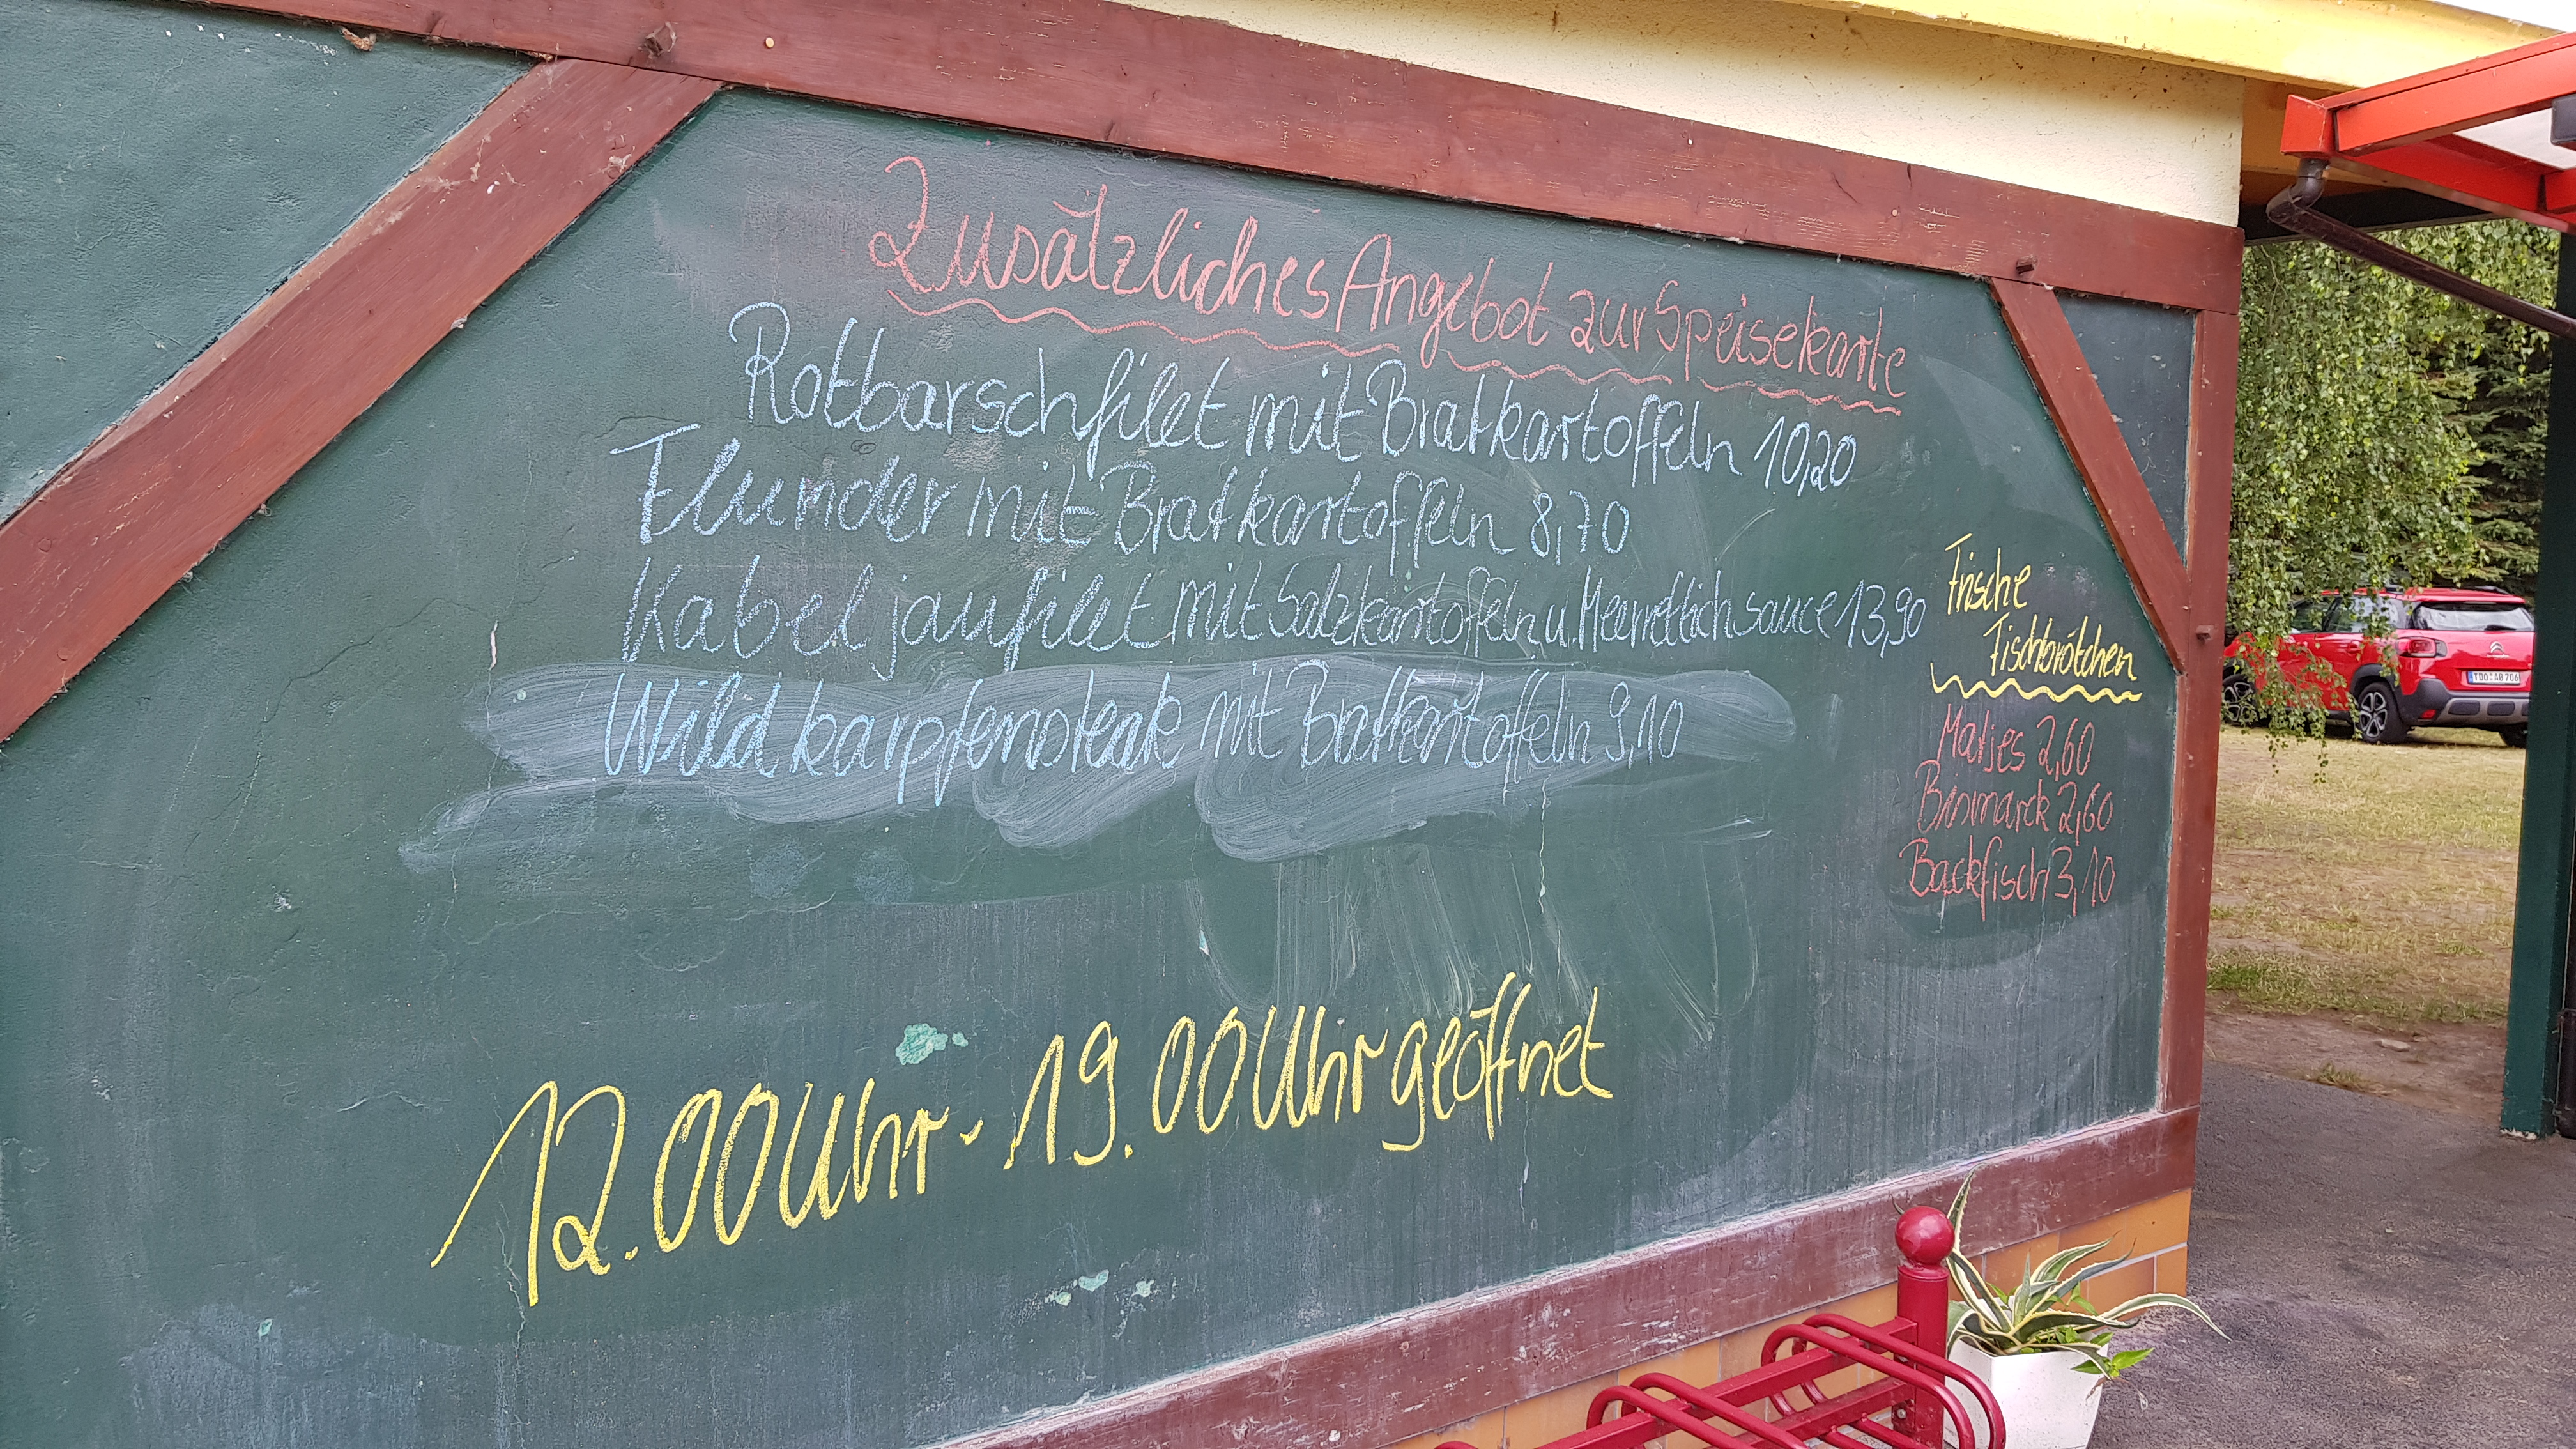 Zusätzliches Angebot zur Speisekarte
Rotbarschfilet mit Bratkartoffeln 10,20
Flunder mit Bratkartoffeln 8,70
Kabeljaufilet mit Salzkartoffeln u. Meerrettichsauce 13,90
Wildkarpfensteak mit Bratkartoffeln 9,10
Frische
Fischbrötchen
Matjes 2,60
Bismarck 2,60
Backfisch 3,10
12.00 Uhr - 19.00 Uhr geöffnet
TDO AB 706